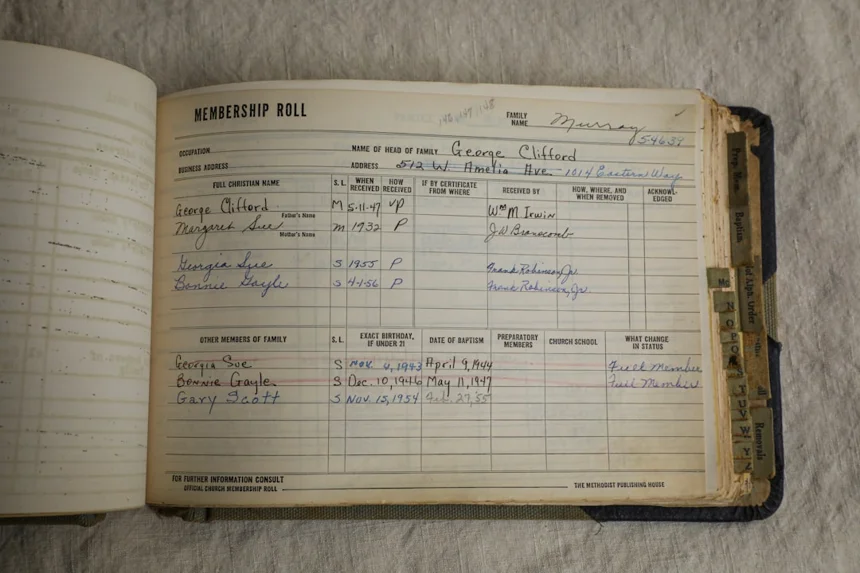 MEMBERSHIP ROLL
FAMILY NAME Murray
54637
OCCUPATION NAME OF HEAD OF FAMILY George Clifford
BUSINESS ADDRESS ADDRESS 512 W. Amelia Ave. - 1014 Eastern Way
FULL CHRISTIAN NAME S. L. WHEN RECEIVED HOW RECEIVED IF BY CERTIFICATE FROM WHERE RECEIVED BY HOW, WHERE, AND WHEN REMOVED ACKNOWLEDGED
George Clifford M 5-11-47 VP Wm M Irwin
Father's Name
Margaret Sue M 1932 P J.D. Branscomb
Mother's Name
Georgia Sue S 1955 P Frank Robinson, Jr.
Bonnie Gayle S 4-1-56 P Frank Robinson, Jr.
OTHER MEMBERS OF FAMILY S. L. EXACT BIRTHDAY, IF UNDER 21 DATE OF BAPTISM PREPARATORY MEMBERS CHURCH SCHOOL WHAT CHANGE IN STATUS
Georgia Sue S Nov. 4, 1943 April 9, 1944 Full Member
Bonnie Gayle S Dec. 10, 1946 May 11, 1947 Full Member
Gary Scott S Nov. 15, 1954 Feb. 27, 55
FOR FURTHER INFORMATION CONSULT
OFFICIAL CHURCH MEMBERSHIP ROLL THE METHODIST PUBLISHING HOUSE
Prep. Mem.
Baptism
Alph. Order
Mc
N
O
P
Removals
W
Y
Z